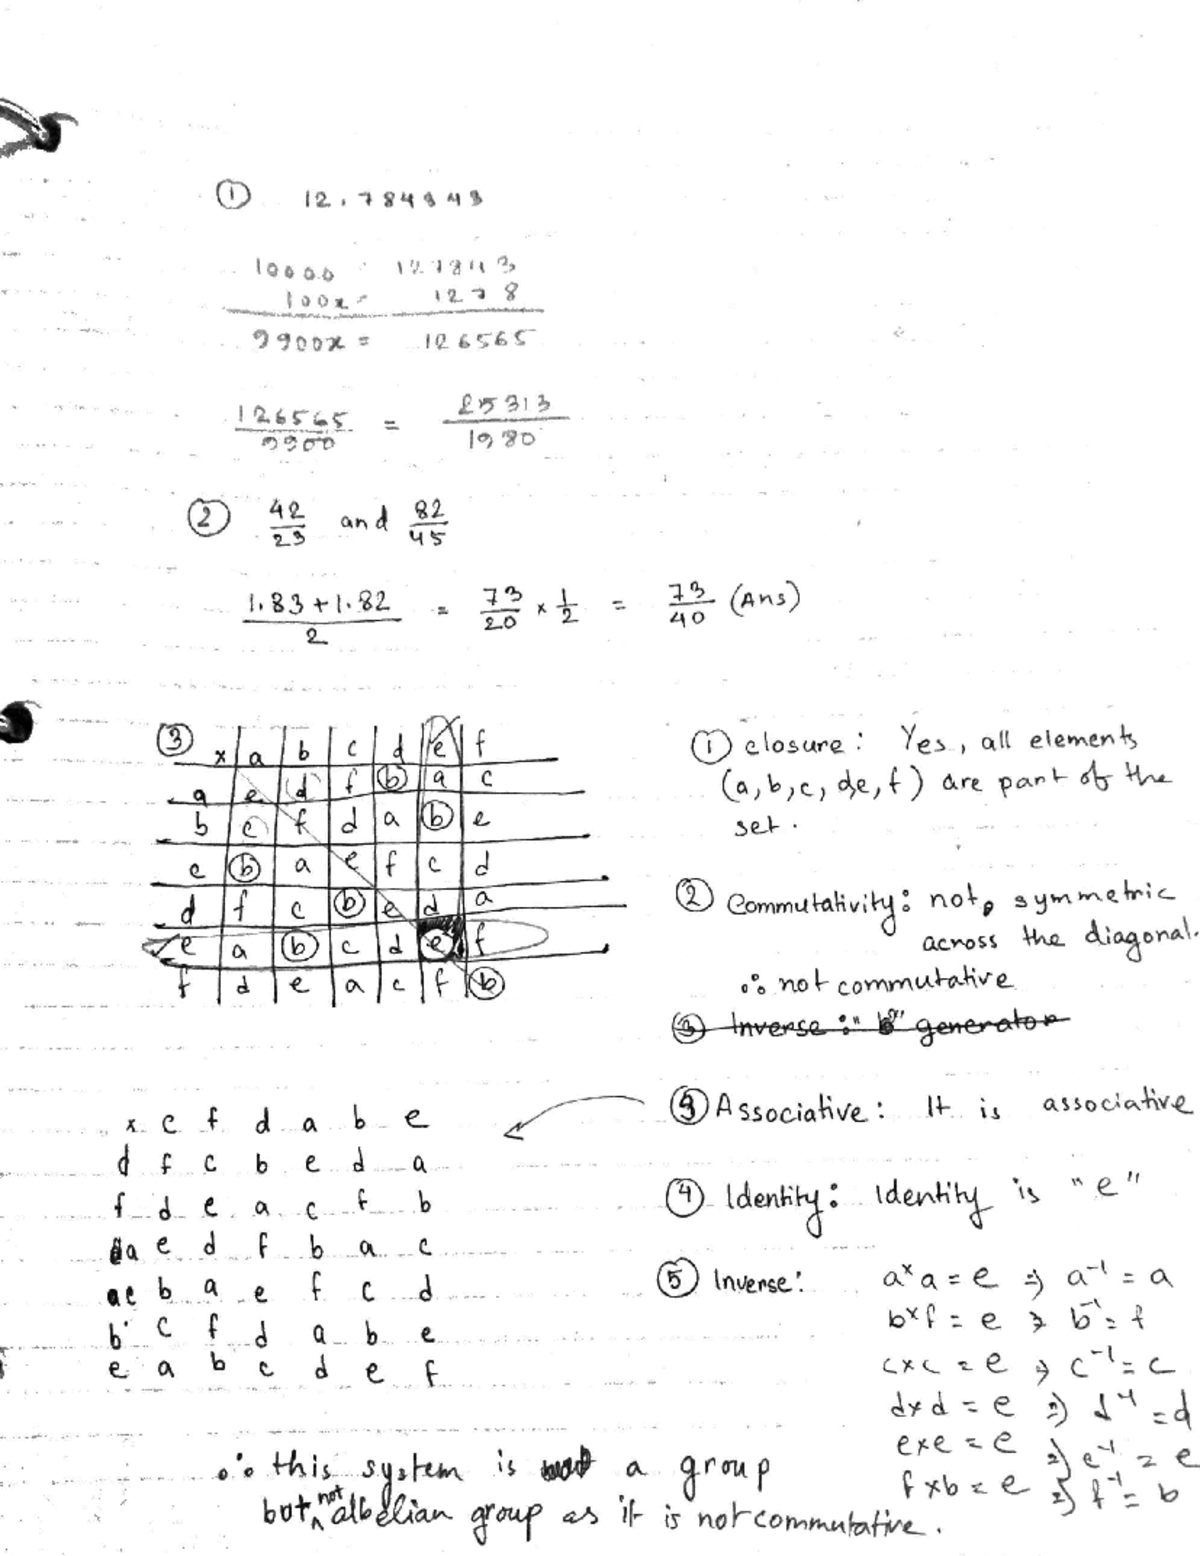 ① 12.7843 43
10000 127843
100x = 1278
9900x = 126565
126565/9900 = 25313/1980
② 42/23 and 82/45
(1.83 + 1.82)/2 = 73/20 × 1/2 = 73/40 (Ans)
③ x a b c d e f
a e d f b a c
b c f d a b e
c b a e f c d
d f c b e d a
e a b c d e f
f d e a c f b
① closure: Yes, all elements
(a, b, c, d, e, f) are part of the
set.
② Commutativity: not symmetric
across the diagonal.
∴ not commutative
③ Inverse: "b" generator
③ Associative: It is associative
x c f d a b e
d f c b e d a
f d e a c f b
a e d f b a c
c b a e f c d
b c f d a b e
e a b c d e f
④ Identity: Identity is "e"
⑤ Inverse: a × a = e ⇒ a⁻¹ = a
b × f = e ⇒ b⁻¹ = f
c × c = e ⇒ c⁻¹ = c
d × d = e ⇒ d⁻¹ = d
e × e = e ⇒ e⁻¹ = e
f × b = e ⇒ f⁻¹ = b
∴ this system is a group
but not albelian group as it is not commutative.